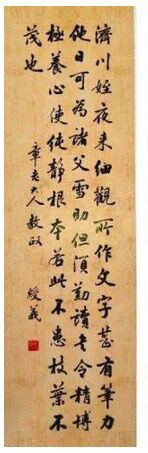 濟川姪夜来細觀所作文字甚有筆力
他日可為諸父雪耻但須勤讀書令精博
極養心使純靜根本若此不患枝葉不
茂也
章老大人教政 綬義